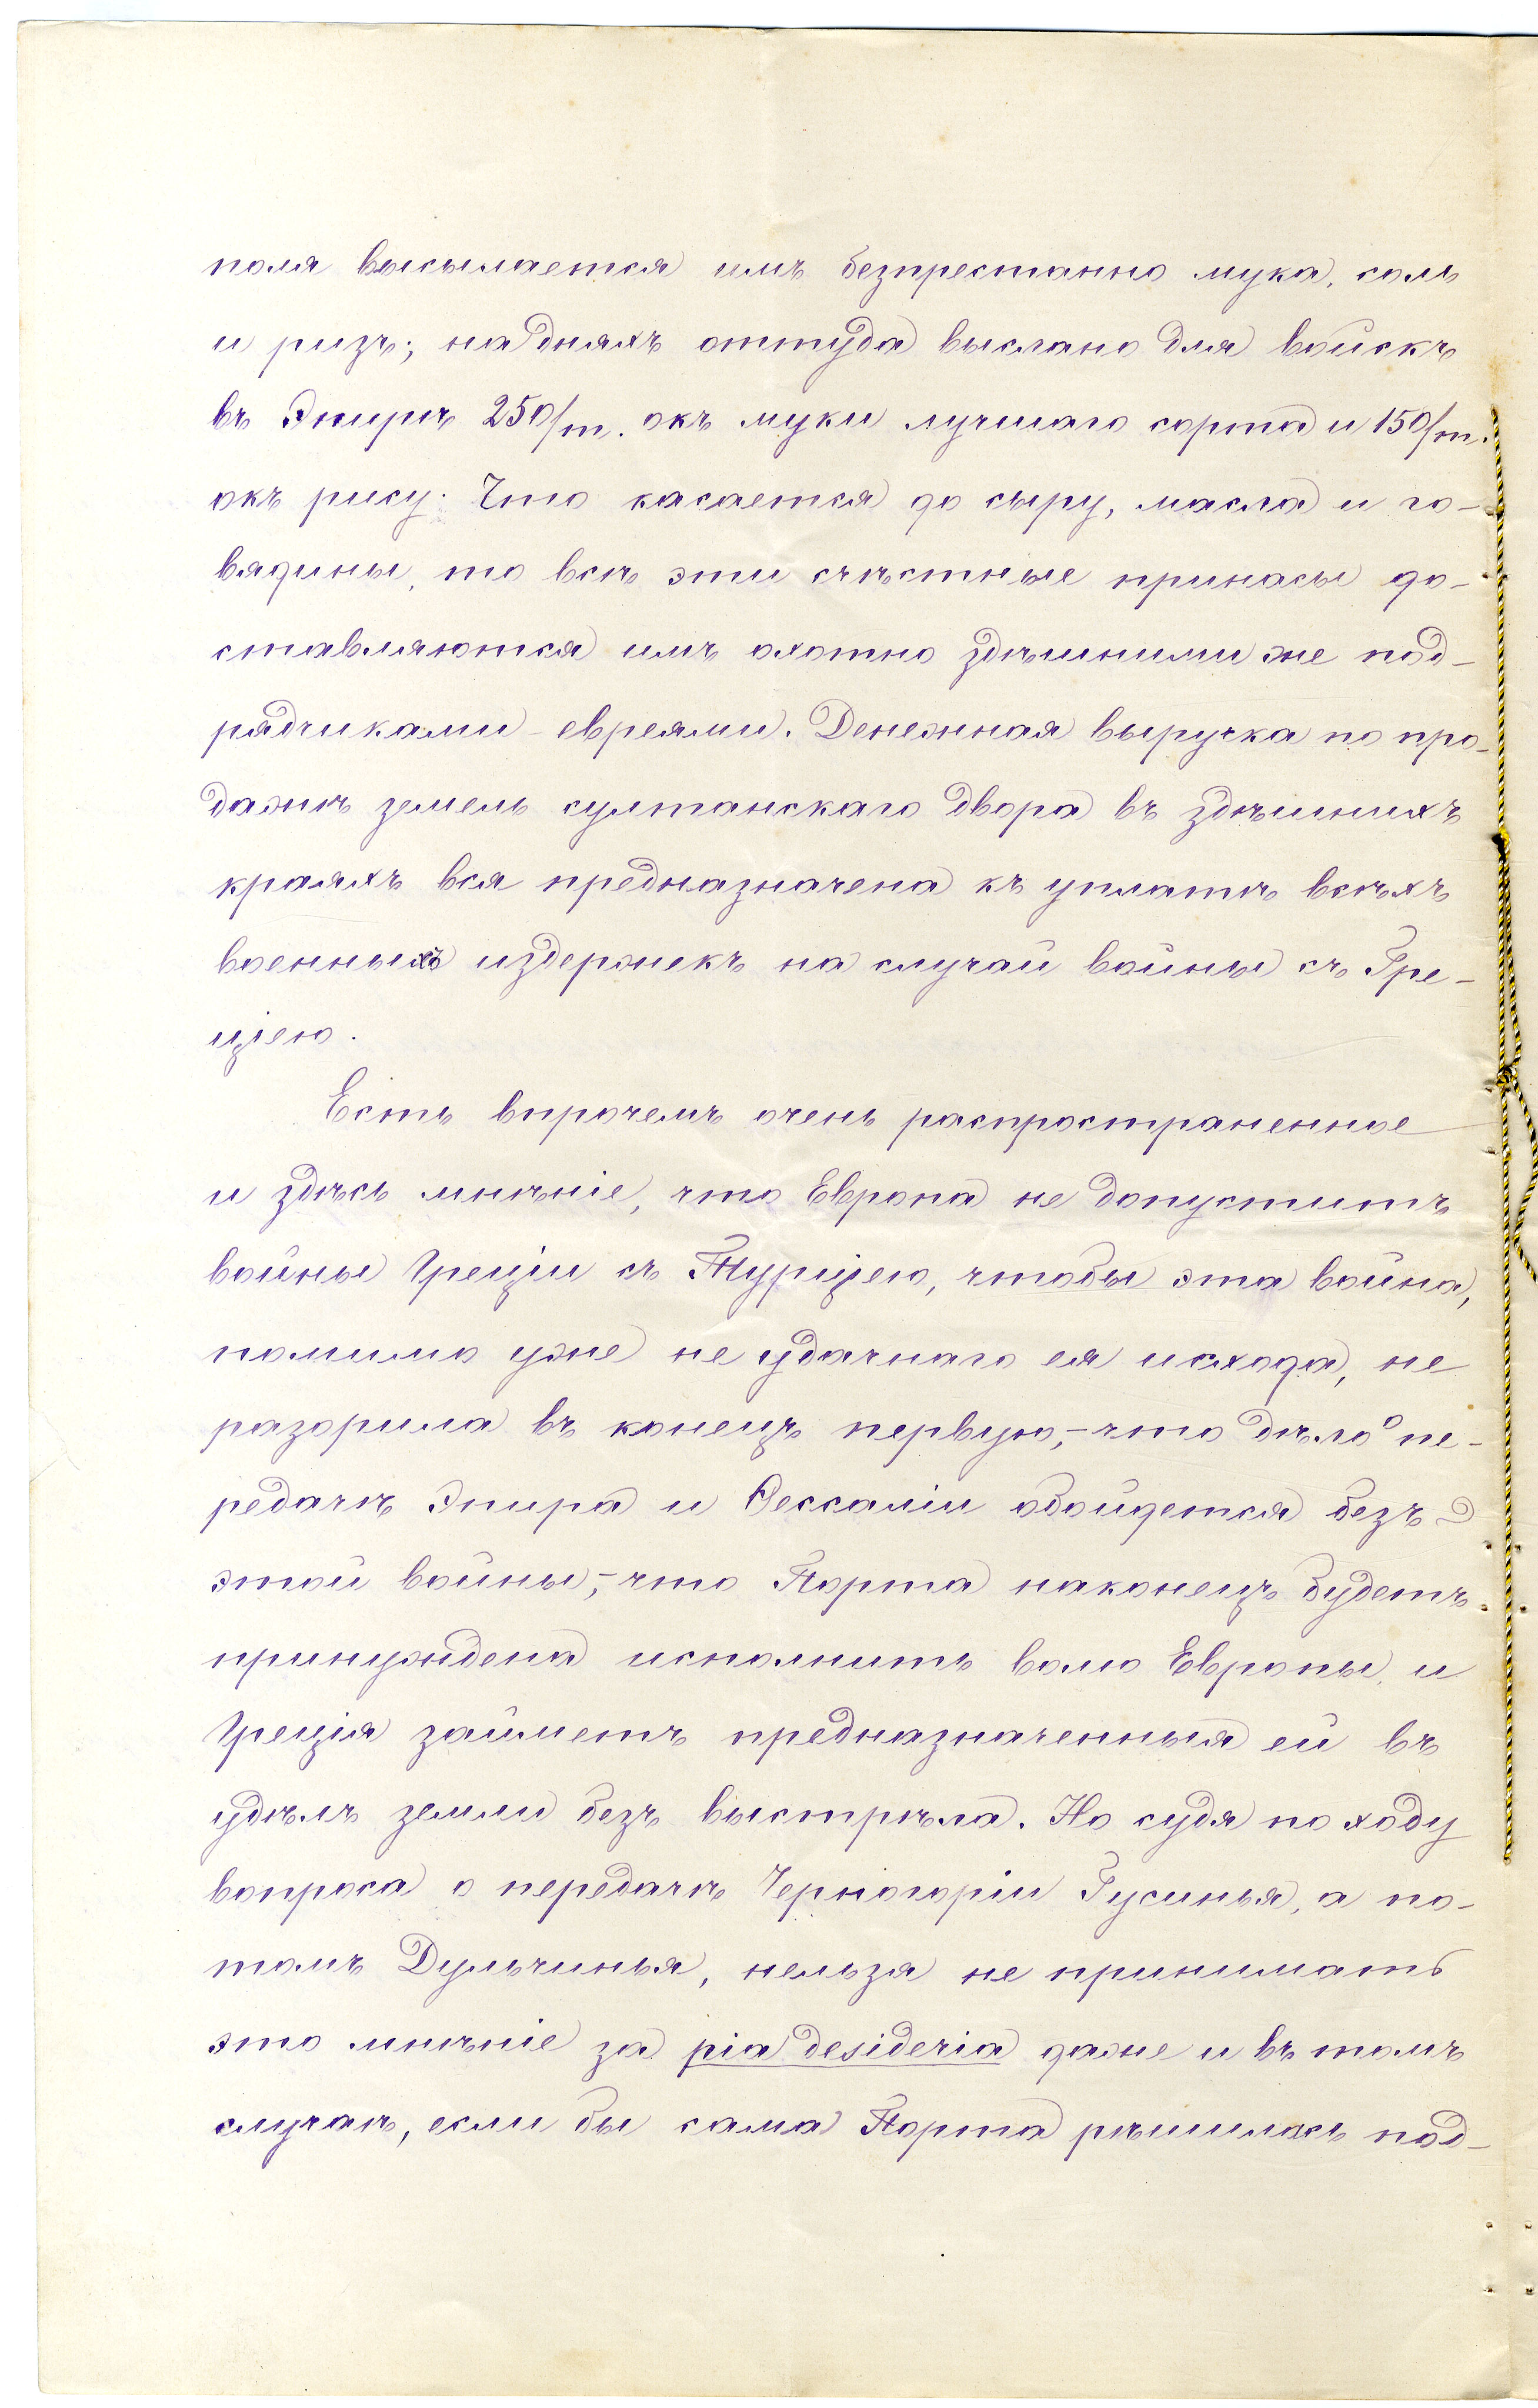 поля высылается имъ безпрестанно мука, соль
и ризъ; надняхъ оттуда выслано для войскъ
въ Эпирѣ 250/т. окъ муки лучшаго сорта и 150/т.
окъ рису. Что касается до сыру, масла и го-
вядины, то всѣ эти съѣстные припасы до-
ставляются имъ охотно здѣшними же под-
рядчиками - евреями. Денежная выручка по про-
дажѣ земель султанскаго двора въ здѣшнихъ
краяхъ вся предназначена къ уплатѣ всѣхъ
военныхъ издержекъ на случай войны съ Гре-
ціею.
Есть впрочемъ очень распространенное
и здѣсь мнѣніе, что Европа не допуститъ
войны Греціи съ Турціею, чтобы эта война,
помимо уже не удачнаго ея исхода, не
разорила въ конецъ первую,- что дѣло о пе-
редачѣ Эпира и Ѳессаліи обойдется безъ
этой войны,- что Порта наконецъ будетъ
принуждена исполнить волю Европы, и
Греція займетъ предназначенныя ей въ
удѣлъ земли безъ выстрѣла. Но судя по ходу
вопроса о передачѣ Черногоріи Гусинья, а по-
томъ Дульчинья, нельзя не принимать
это мнѣніе за pia desideria даже и въ томъ
случаѣ, если бы сама Порта рѣшилась под-